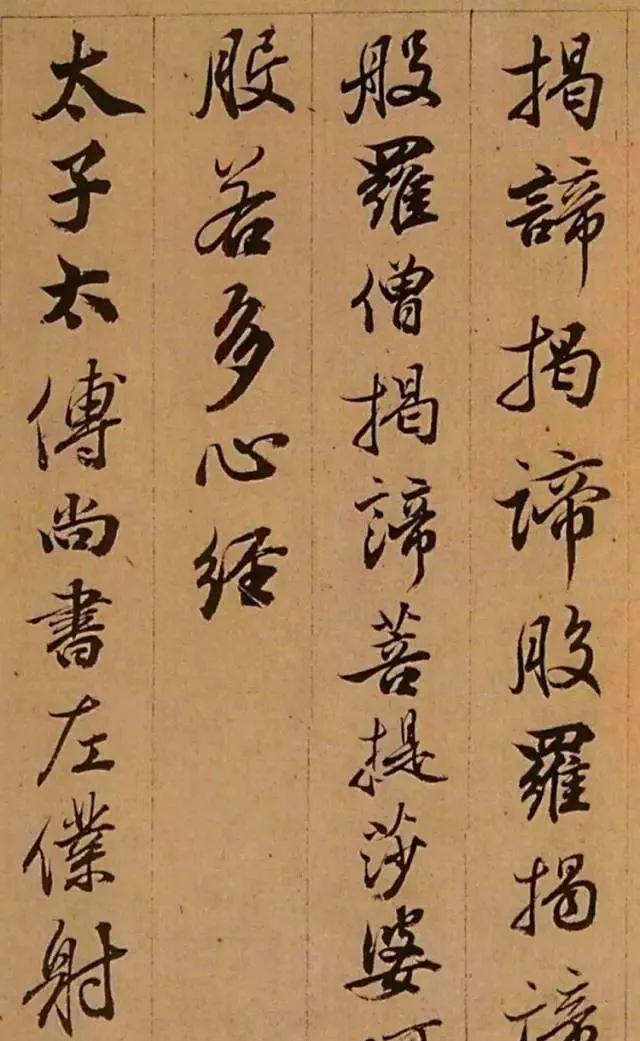 揭諦揭諦般羅揭諦
般羅僧揭諦菩提莎婆
般若多心經
太子太傅尚書左僕射